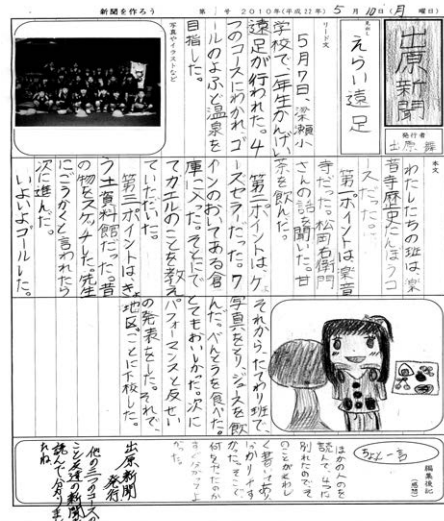 新聞を作ろう 第 号 2010年(平成22年) 5月10日(月曜日)
出原新聞
発行者
出原
見出し
えらい遠足
リード文
5月7日、梁瀬小
学校で、一年生かんげい
遠足が行われた。4
つのコースにわかれ、ゴ
ールのよふど温泉を
目指した。
写真やイラストなど
本文
わたしたちの班は、楽
音寺歴史たんほうコ
ースだった。
第一ポイントは、楽音
寺だった。松岡右衛門
さんの話を聞いた。甘
茶を飲んだ。
第二ポイントは、ケ
ースセラだった。ワ
インのおいてある倉
庫に入った。そこに
てカエルのことを教え
ていただいた。
第三ポイントは、きょ
う土資料館だった。昔
の物をスケッチした。先生
にごうかくと言われたら
次に進んだ。
いよいよゴールした。
それから、たてわり班で、
写真をとり、ジュースを飲
んだ。べんとうを食べた。
とてもおいしかった。次に
パフォーマンスと反せい
の発表をした。それで、
地区ごとに下校した。
ちょっと一言
編集後記
(感想)
ほかの人のを
読んで、4つに
別れたのでそ
のことがくわし
く書いてあり
わかりやす
かった。そこで
何をしたのか
出原新聞
発行
他の三つのコースの
こと友達の新聞を
読んで分かりました
ね。